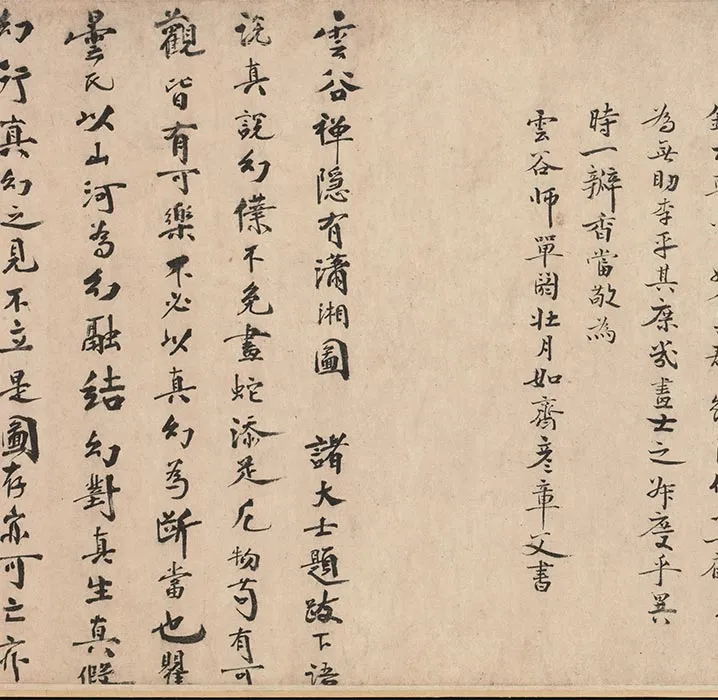 為無助李平其庶幾畫士之度乎異
時一瓣香當敬為
雲谷師單閼壯月如齋彥章父書
雲谷禅隱有瀟湘圖 諸大士題跋下語
說真說幻僕不免畫蛇添足凡物苟有可
觀皆有可樂不必以真幻為斷當也瞿
曇氏以山河為幻融結幻對真生真假
幻行真幻之見不立是圖存亦可亡亦